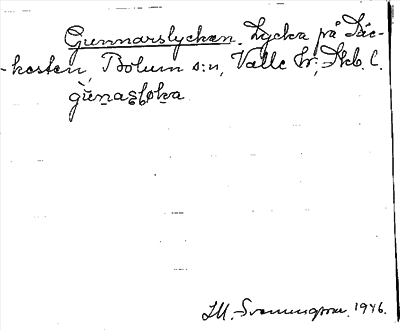 Gunnarslyckan. Lycka på Läc-
-kosten, Bolum s:n, Valle hr; Skb. l.
gùnasløka
M. Svenungsson. 1946.